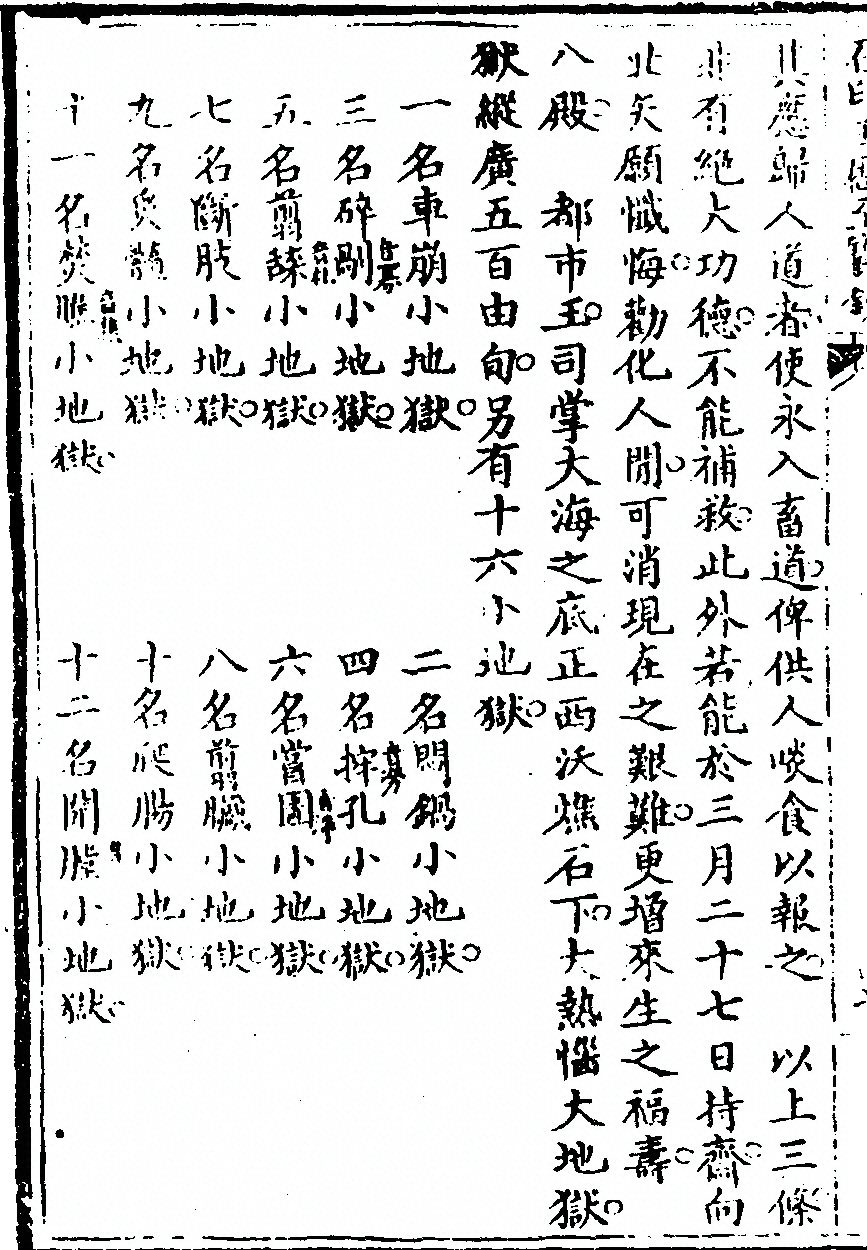 其應歸人道者使永入畜道。俾供人啖食以報之。　以上三條
非有絕大功德。不能補救。此外若能於三月二十七日持齋。向
北矢願懺悔。勸化人間。可消現在之艱難。更增來生之福壽。
八殿。　都市王。司掌大海之底正西沃燋石下。大熱惱大地獄。
獄縱廣五百由旬。另有十六小地獄。
一名車崩小地獄。　二名悶鍋小地獄。
三名碎剮小地獄。　四名搾孔小地獄。
五名翦小地獄。　六名嘗圊小地獄。
七名斷肢小地獄。　八名翦臟小地獄。
九名炙髓小地獄。　十名爬腸小地獄。
十一名焚膲小地獄。　十二名開膛小地獄。